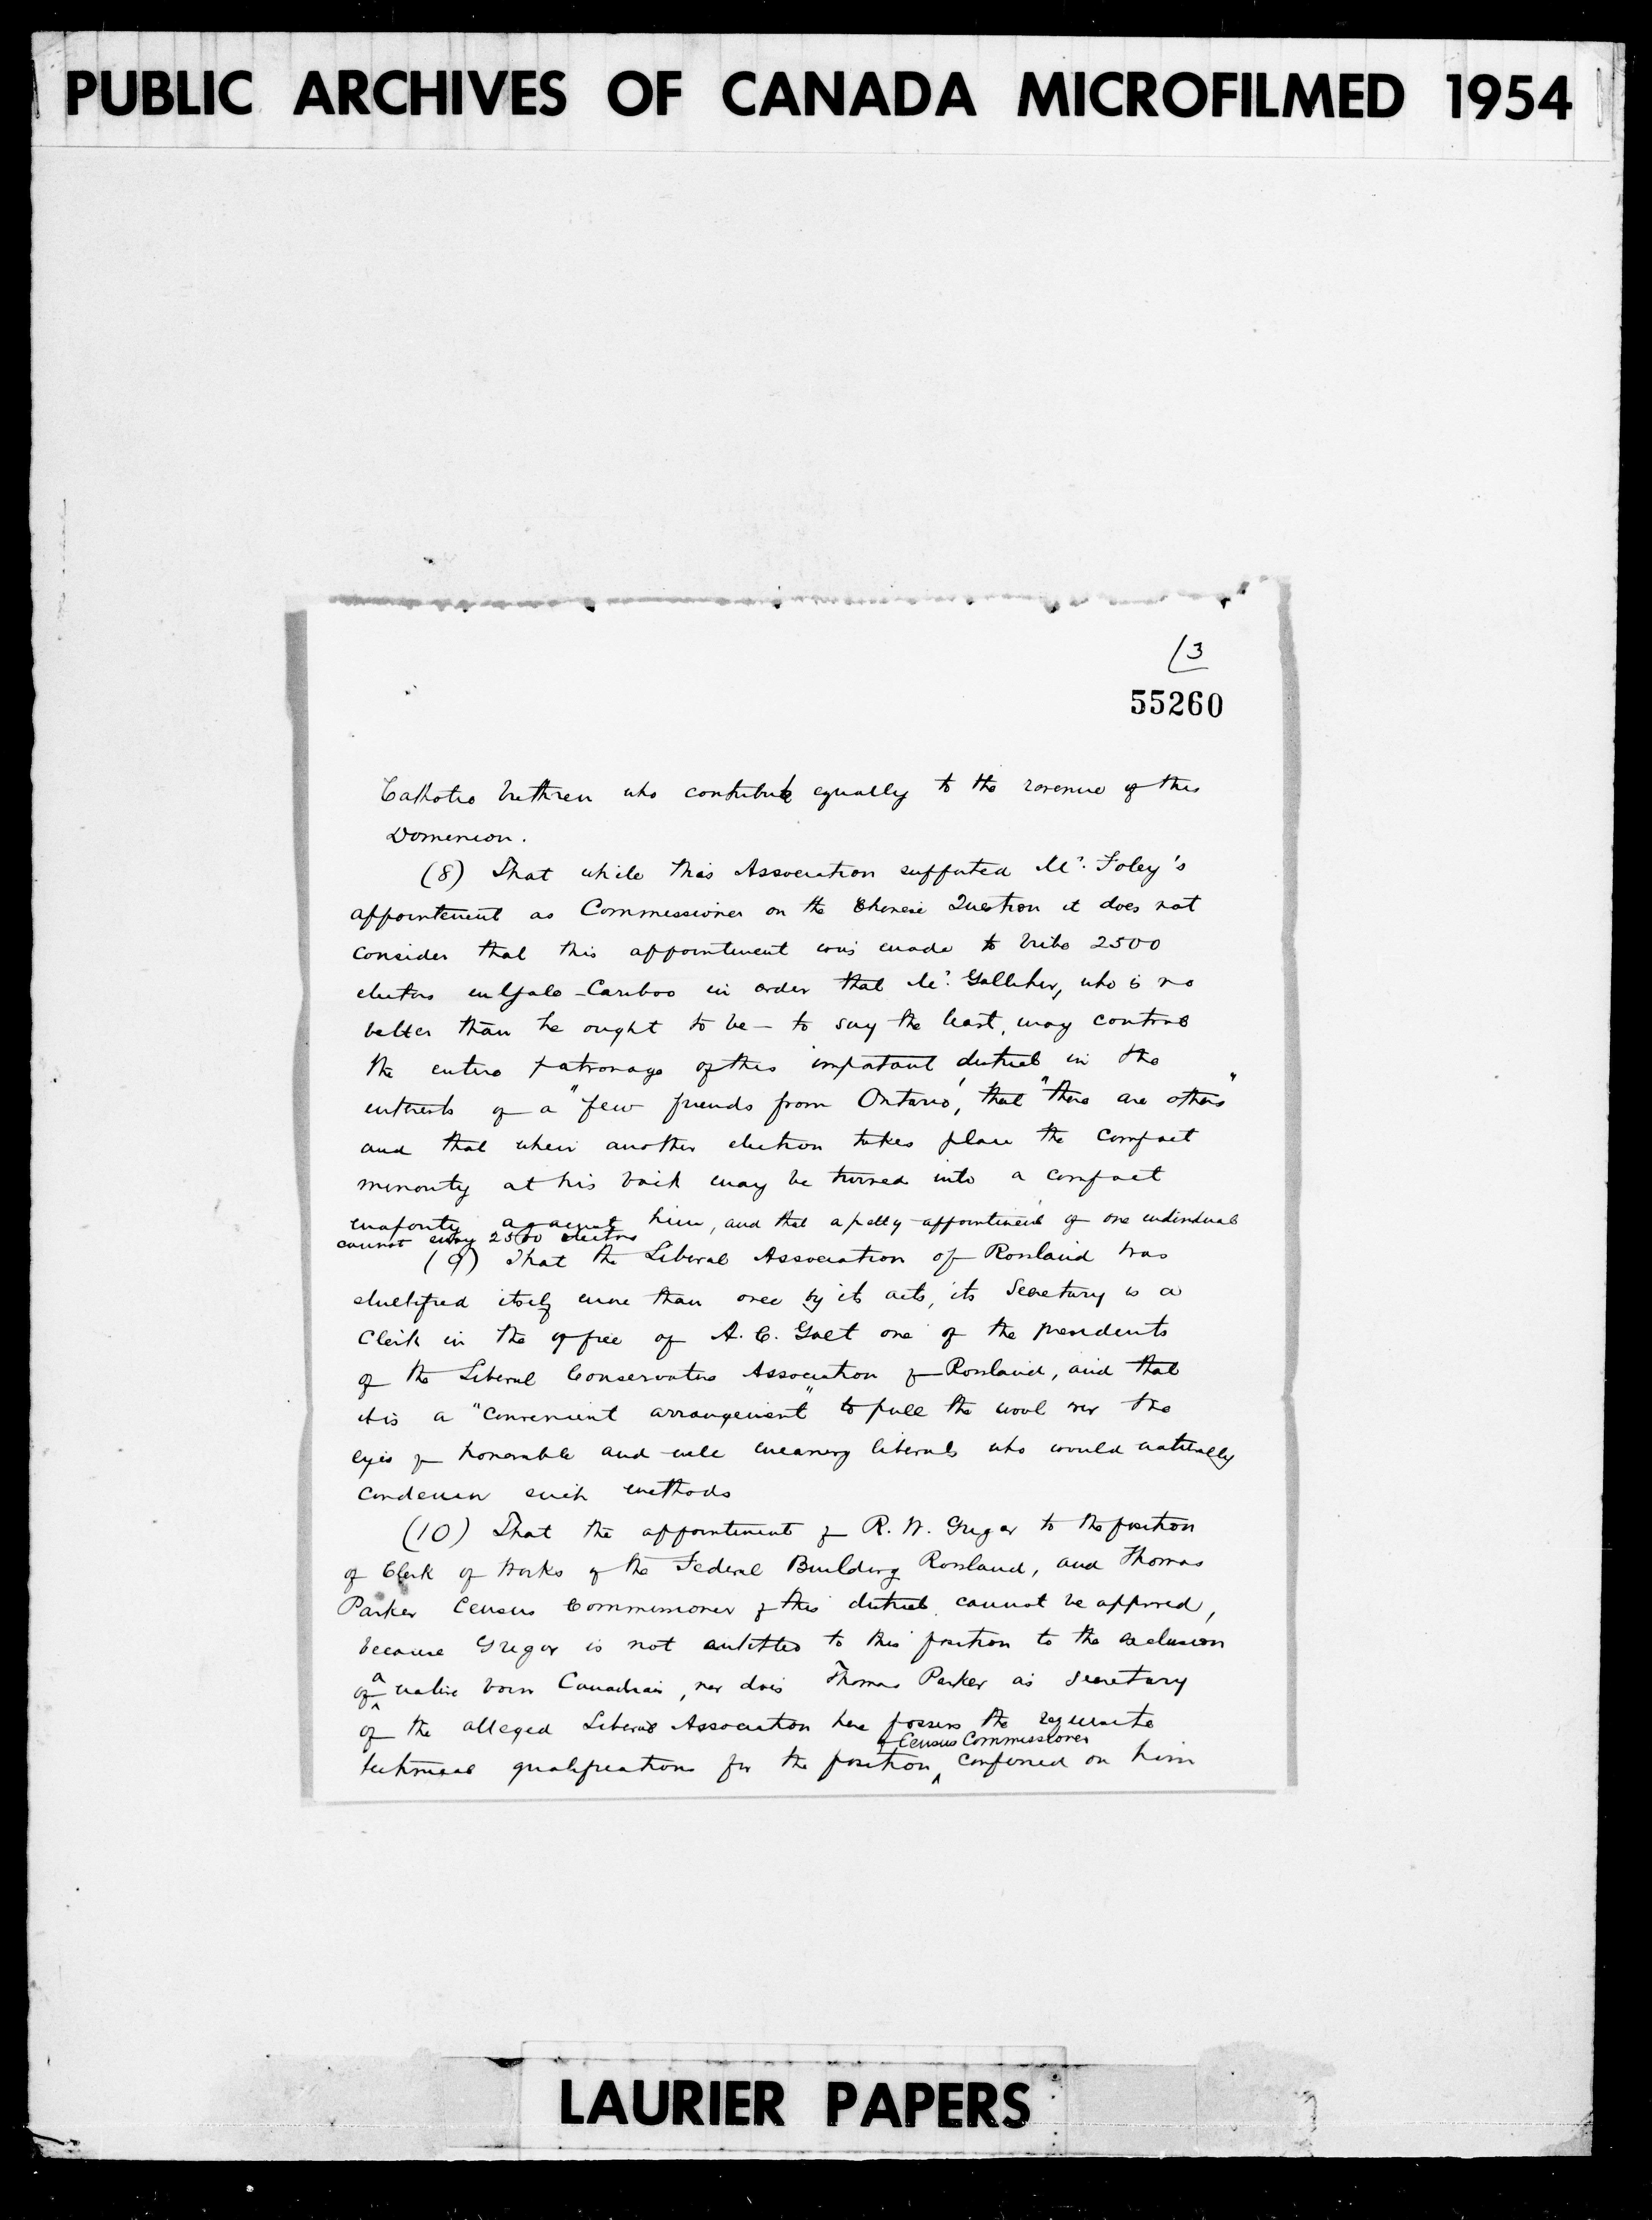 PUBLIC ARCHIVES OF CANADA MICROFILMED 1954
(3
55260
Catholic brethren who contribute equally to the revenue of this
Dominion.
(8) That while this Association supported Mr. Foley's
appointment as Commissioner on the Chinese Question it does not
consider that this appointment was made to bribe 2500
electors in Yale-Cariboo in order that Mr. Galliher, who is no
better than he ought to be - to say the least, may control
the entire patronage of this important district in the
interests of a "few friends from Ontario", that "there are others"
and that when another election takes place the compact
minority at his back may be turned into a compact
majority against him, and that a petty appointment of one individual
cannot sway 2500 electors
(9) That the Liberal Association of Rossland has
stultified itself more than once by its acts, its Secretary is a
Clerk in the office of A. C. Galt one of the presidents
of the Liberal Conservative Association of Rossland, and that
it is a "convenient arrangement" to pull the wool over the
eyes of honorable and well meaning liberals who would naturally
condemn such methods
(10) That the appointment of R. W. Grigor to the position
of Clerk of Works of the Federal Building Rossland, and Thomas
Parker Census Commissioner of this district cannot be approved,
because Grigor is not entitled to this position to the exclusion
of a native born Canadian, nor does Thomas Parker as Secretary
of the alleged Liberal Association here possess the requisite
of Census Commissioner
technical qualifications for the position conferred on him
LAURIER PAPERS